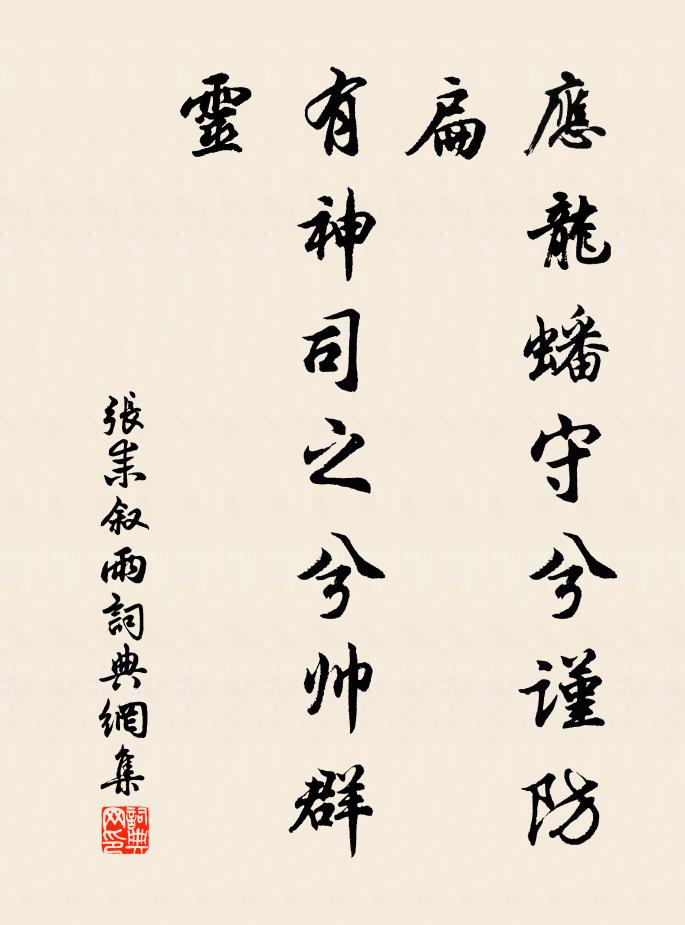 應龍蟠守兮謹防
扁
有神司之兮帅群
靈
張耒叙雨詞典網集
詞典网印